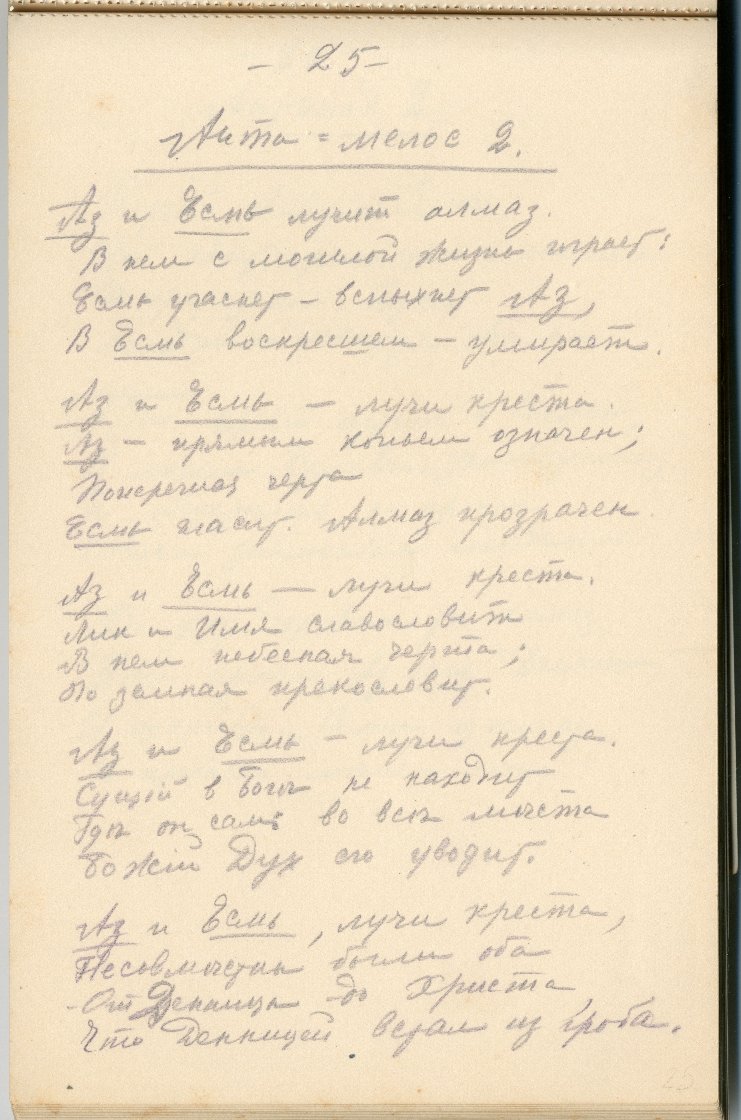 - 25 -
Анта = мелос 2.
Аз и Есмь лучит алмаз.
В нем с могилой жизнь играет:
Есмь угаснет - вспыхнет Аз,
В Есмь воскресшем - умирает.
Аз и Есмь - лучи креста.
Аз - прямым копьем означен;
Поперечная черта
Есмь гласит. Алмаз прозрачен.
Аз и Есмь - лучи креста.
Лик и Имя славословит
В нем небесная черта;
Но земная прекословит.
Аз и Есмь - лучи креста.
Сущий в Боге не находит
Гдѣ он сам: во всѣ мѣста
Божій Дух его уводит.
Аз и Есмь, лучи креста,
Несовмѣстны были оба
- От Денницы до Христа,
Что Денницей встал из гроба.
25